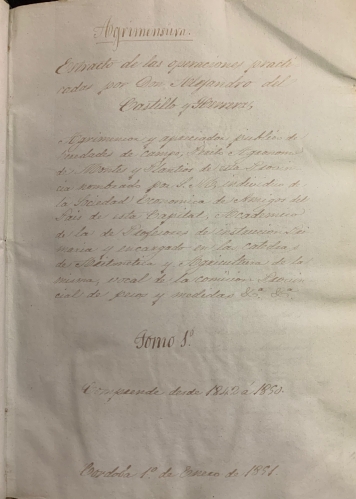 Agrimensura.
Extracto de las operaciones practi
cadas por Don Alejandro del
Castillo y
Agrimensor y apreciador publico de
heredades de campo, Perito Agronomo
de Montes y Plantios de esta Provin
cia nombrado por S. M. individuo de
la Sociedad Economica de Amigos del
Pais de esta Capital, Academico
de la de Profesores de instruccion Pri
maria y encargado en la catedra
de Aritmetica y Agricultura de la
misma, vocal de la comision Provin
cial de pesas y medidas &a. &a.
Tomo 1º
Comprende desde 1842 a 1850.
Cordoba 1º de Enero de 1851.